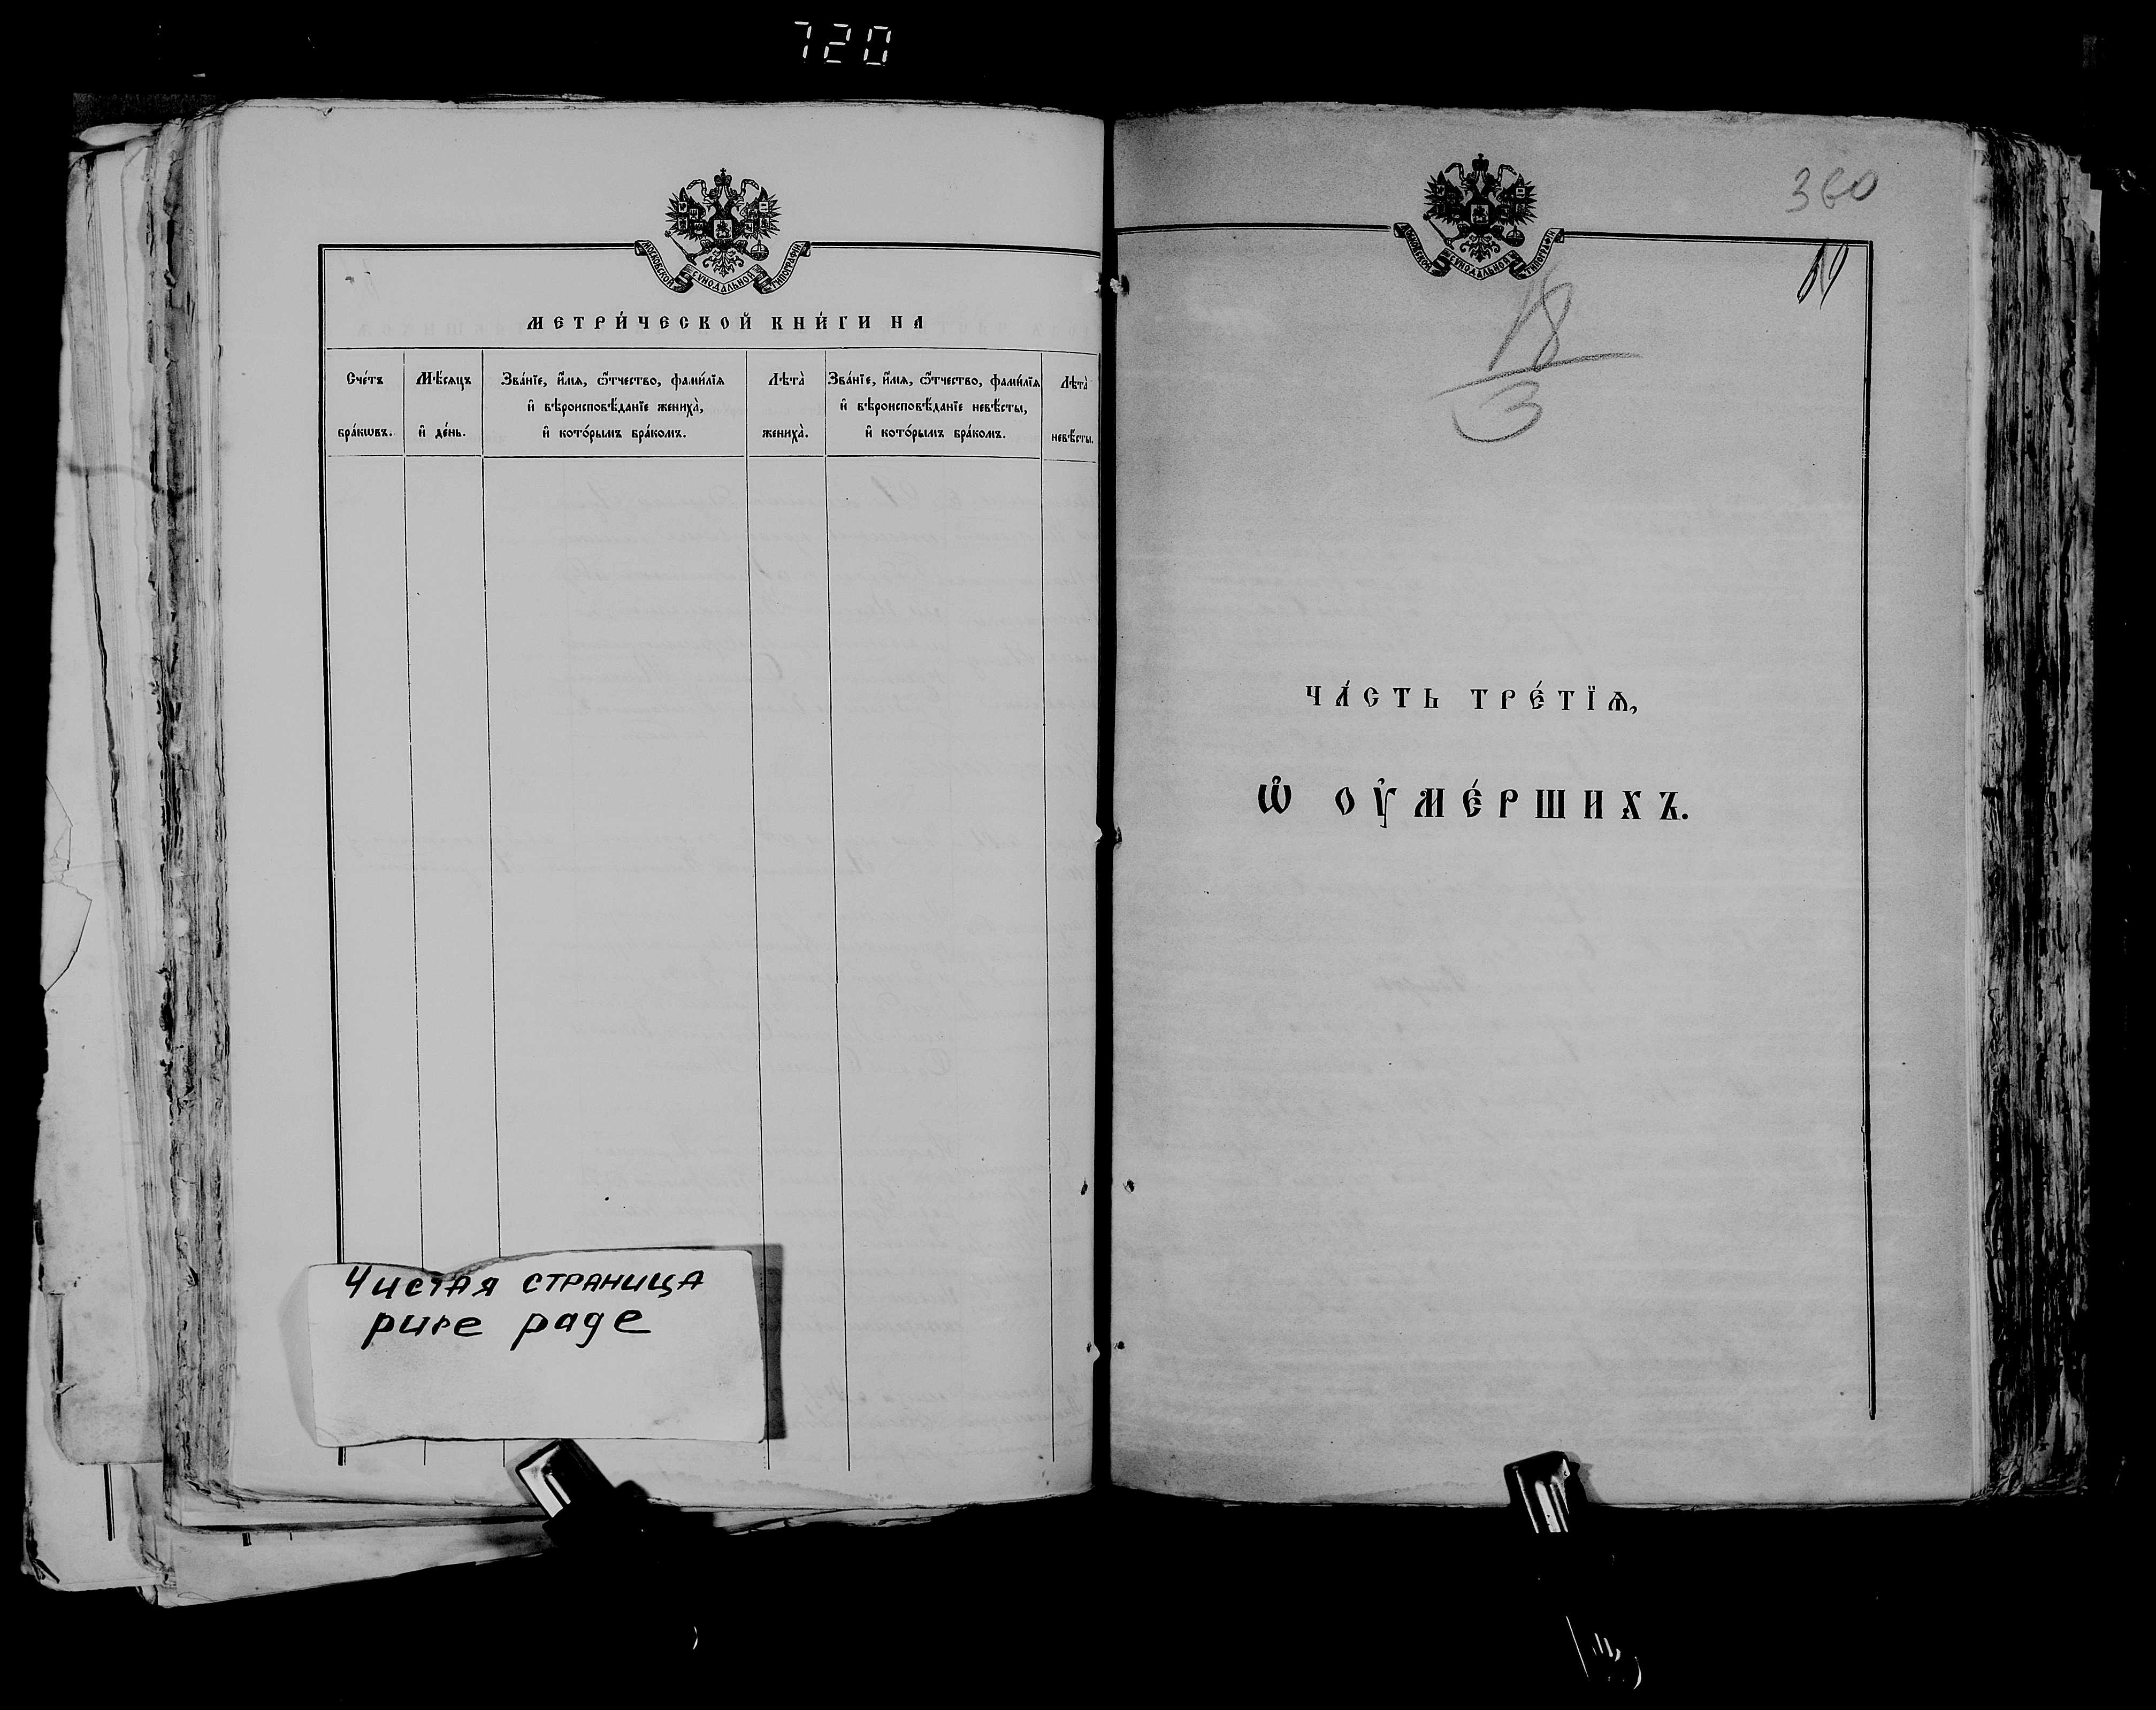 720
МОСКОВСКОЙ СѴНОДАЛЬНОЙ ТИПОГРАФІИ
МЕТРИ́ЧЕСКОЙ КНИ́ГИ НА
Сче́тъ бра́кѡвъ.
Мѣ́сяцъ и҆ де́нь.
Зва́нїе, и҆́мѧ, ѻ҆́тчество, фами́лїѧ
и҆ вѣроисповѣ́данїе жениха̀,
и҆ кото́рымъ бра́комъ.
Лѣта̀ жениха̀.
Зва́нїе, и҆́мѧ, ѻ҆́тчество, фами́лїѧ
и҆ вѣроисповѣ́данїе невѣ́сты,
и҆ кото́рымъ бра́комъ.
Лѣта̀ невѣ́сты.
Чистая страница
pure page
360
МОСКОВСКОЙ СѴНОДАЛЬНОЙ ТИПОГРАФІИ
18
3
ЧА́СТЬ ТРЕ́ТЇѦ,
Ѡ҆ ОУ҆МЕ́РШИХЪ.